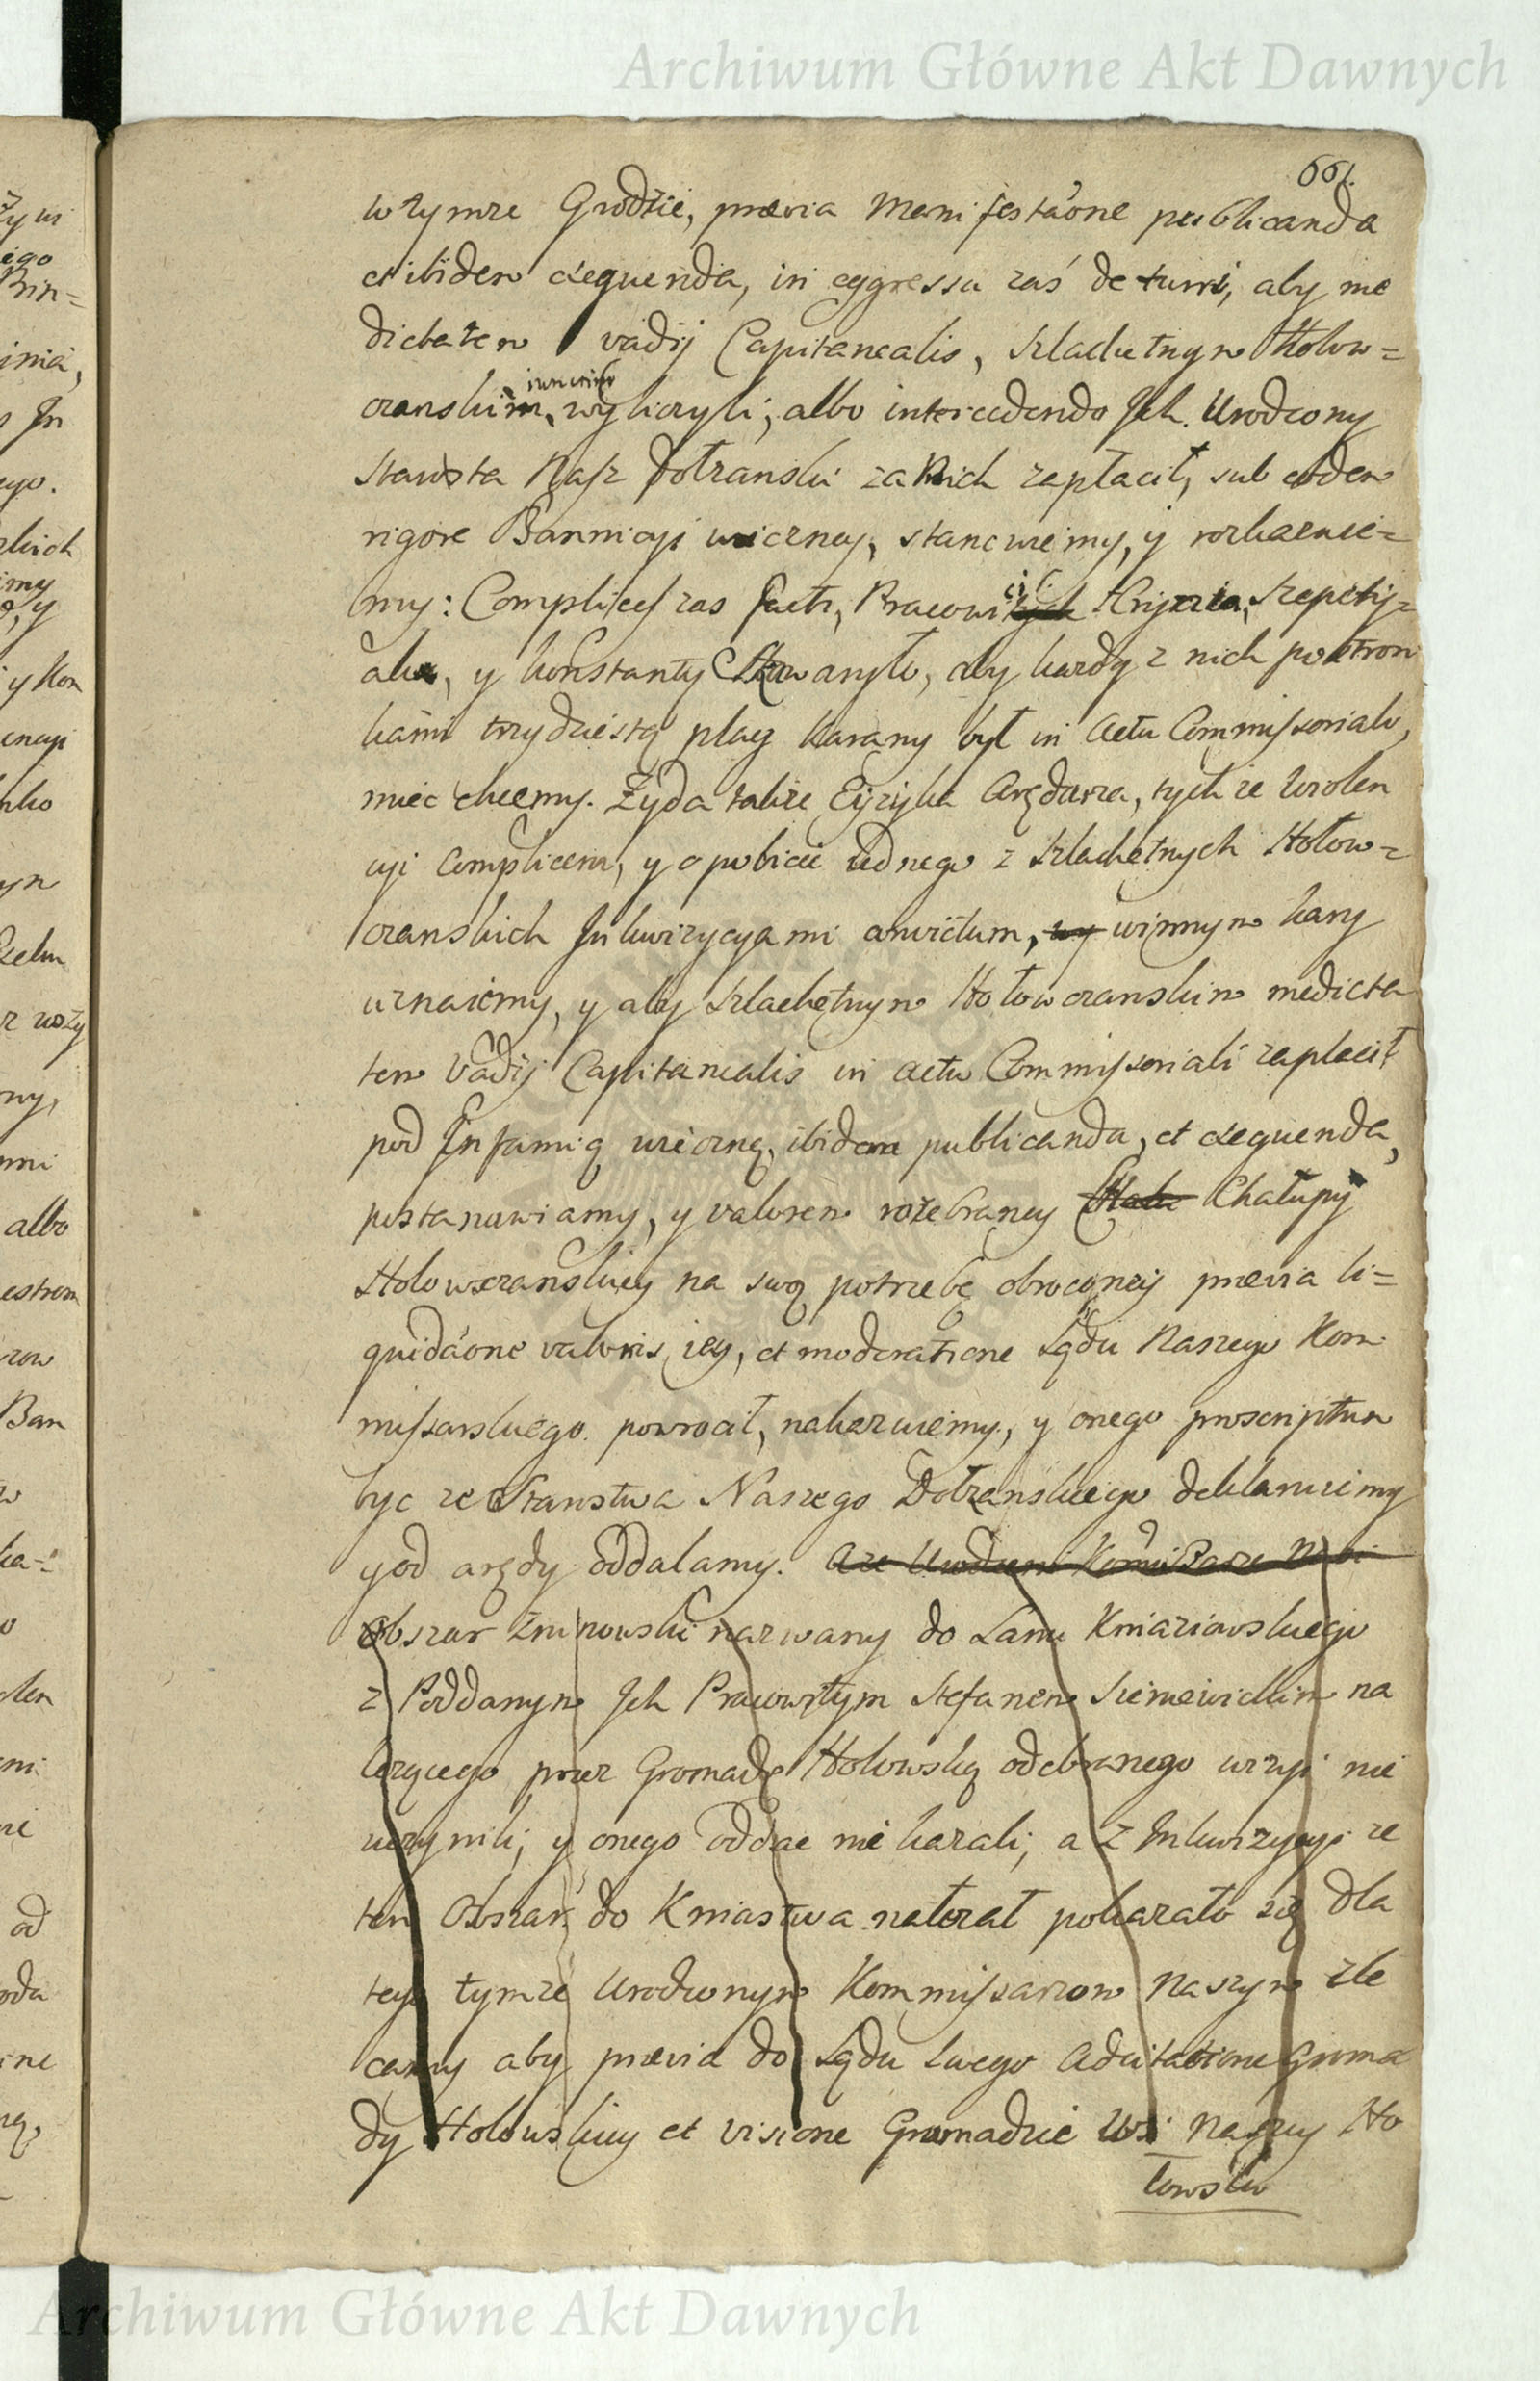 Archiwum Główne Akt Dawnych
661.
w tymze Grodzie, prævia Manifestaõne publicanda
et ibidem exequenda, in eggressu zaś de turri, aby me
dietatem vadij Capitanealis, Szlachetnym Hołow=
czanskim, inwicem wyliczyli, albo intercedendo Jch. Urodzony
Starosta Nasz Dołzanski za Nich zapłacił, sub eadem
rigore Bannicyi wieczney, stanowiemy, y rozkazuie=
my: Complices zas facti, Pracowici Hryzia, Szepety=
aka, y Konstanty aby kazdy z nich postron
kami trzydziestą plag karany był in Actu Commissoriali,
miec chcemy. Zyda takze Eyzyka Arędarza, tych ze wiolen
cyi Complicem, y o pobicie iednego z Szlachetnych Hołow=
czanskich Jnkwizycyami convictum, wy winnym kary
uznaiemy, y aby Szlachętnym Hołowczanskim medieta
tem Vadij Capitanealis in actu Commissoriali zapłacił
pod Jnfamią wieczną, ibidem publicanda, et exequenda,
postanawiamy, y valorem rozebraney Chału Chałupy
Holowczanskiey na swą potrzebę obroconey prævia li=
quidaõne valoris iey, et moderatione Sądu Naszego Kom
missarskiego powrocił, nakazuiemy, y onego proscriptum
byc ze Starostwa Naszego Dołzanskiego deklaruiemy
y od arędy oddalamy. A ze Urodzeni Kommissarze Nasi
Obszar nazwany do Łanu Kniaziowskiego
z Poddanym Jch Pracowitym Stefanem na
lezącego przez Gromadę Hołowską odebranego wizyi nie
uczynili, y onego oddac nie kazali, a z Jnkwizycyi ze
ten Obszar do Kniastwa nalezał pokazało się dla
tego tymze Urodzonym Kommissarzom Naszym zle
camy aby prævia do Sądu Swego Adcitatione Groma
dy Hołowskiey et visione Gromadzie Wsi Naszey Ho
łowsku
Archiwum Główne Akt Dawnych